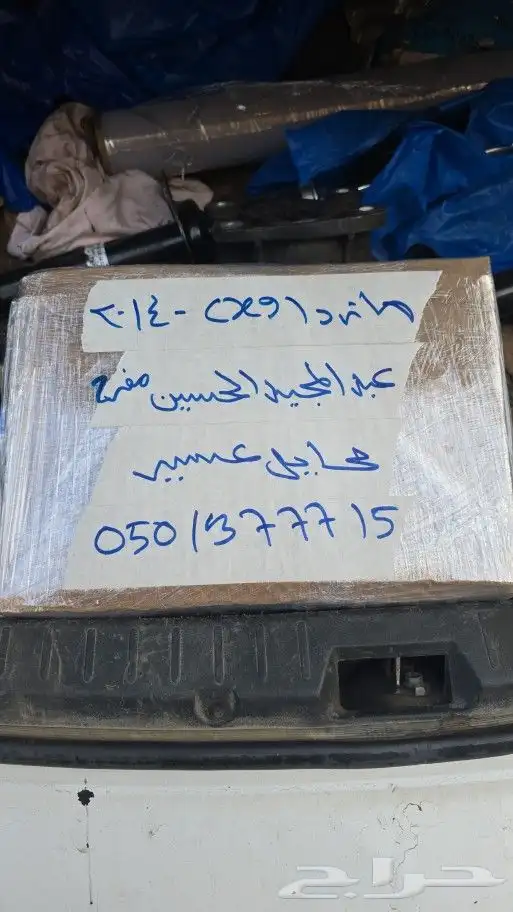 مازدا (cx9) - ٢٠١٤
عبدالمجيد الحسين مفرح
محايل عسير
0501377715
حراج